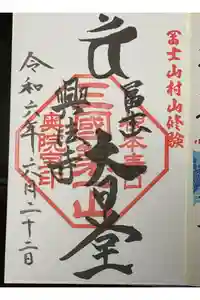 冨士山村山修験
冨士
大日堂
三國第一山
興法寺
令和六年六月二十二日